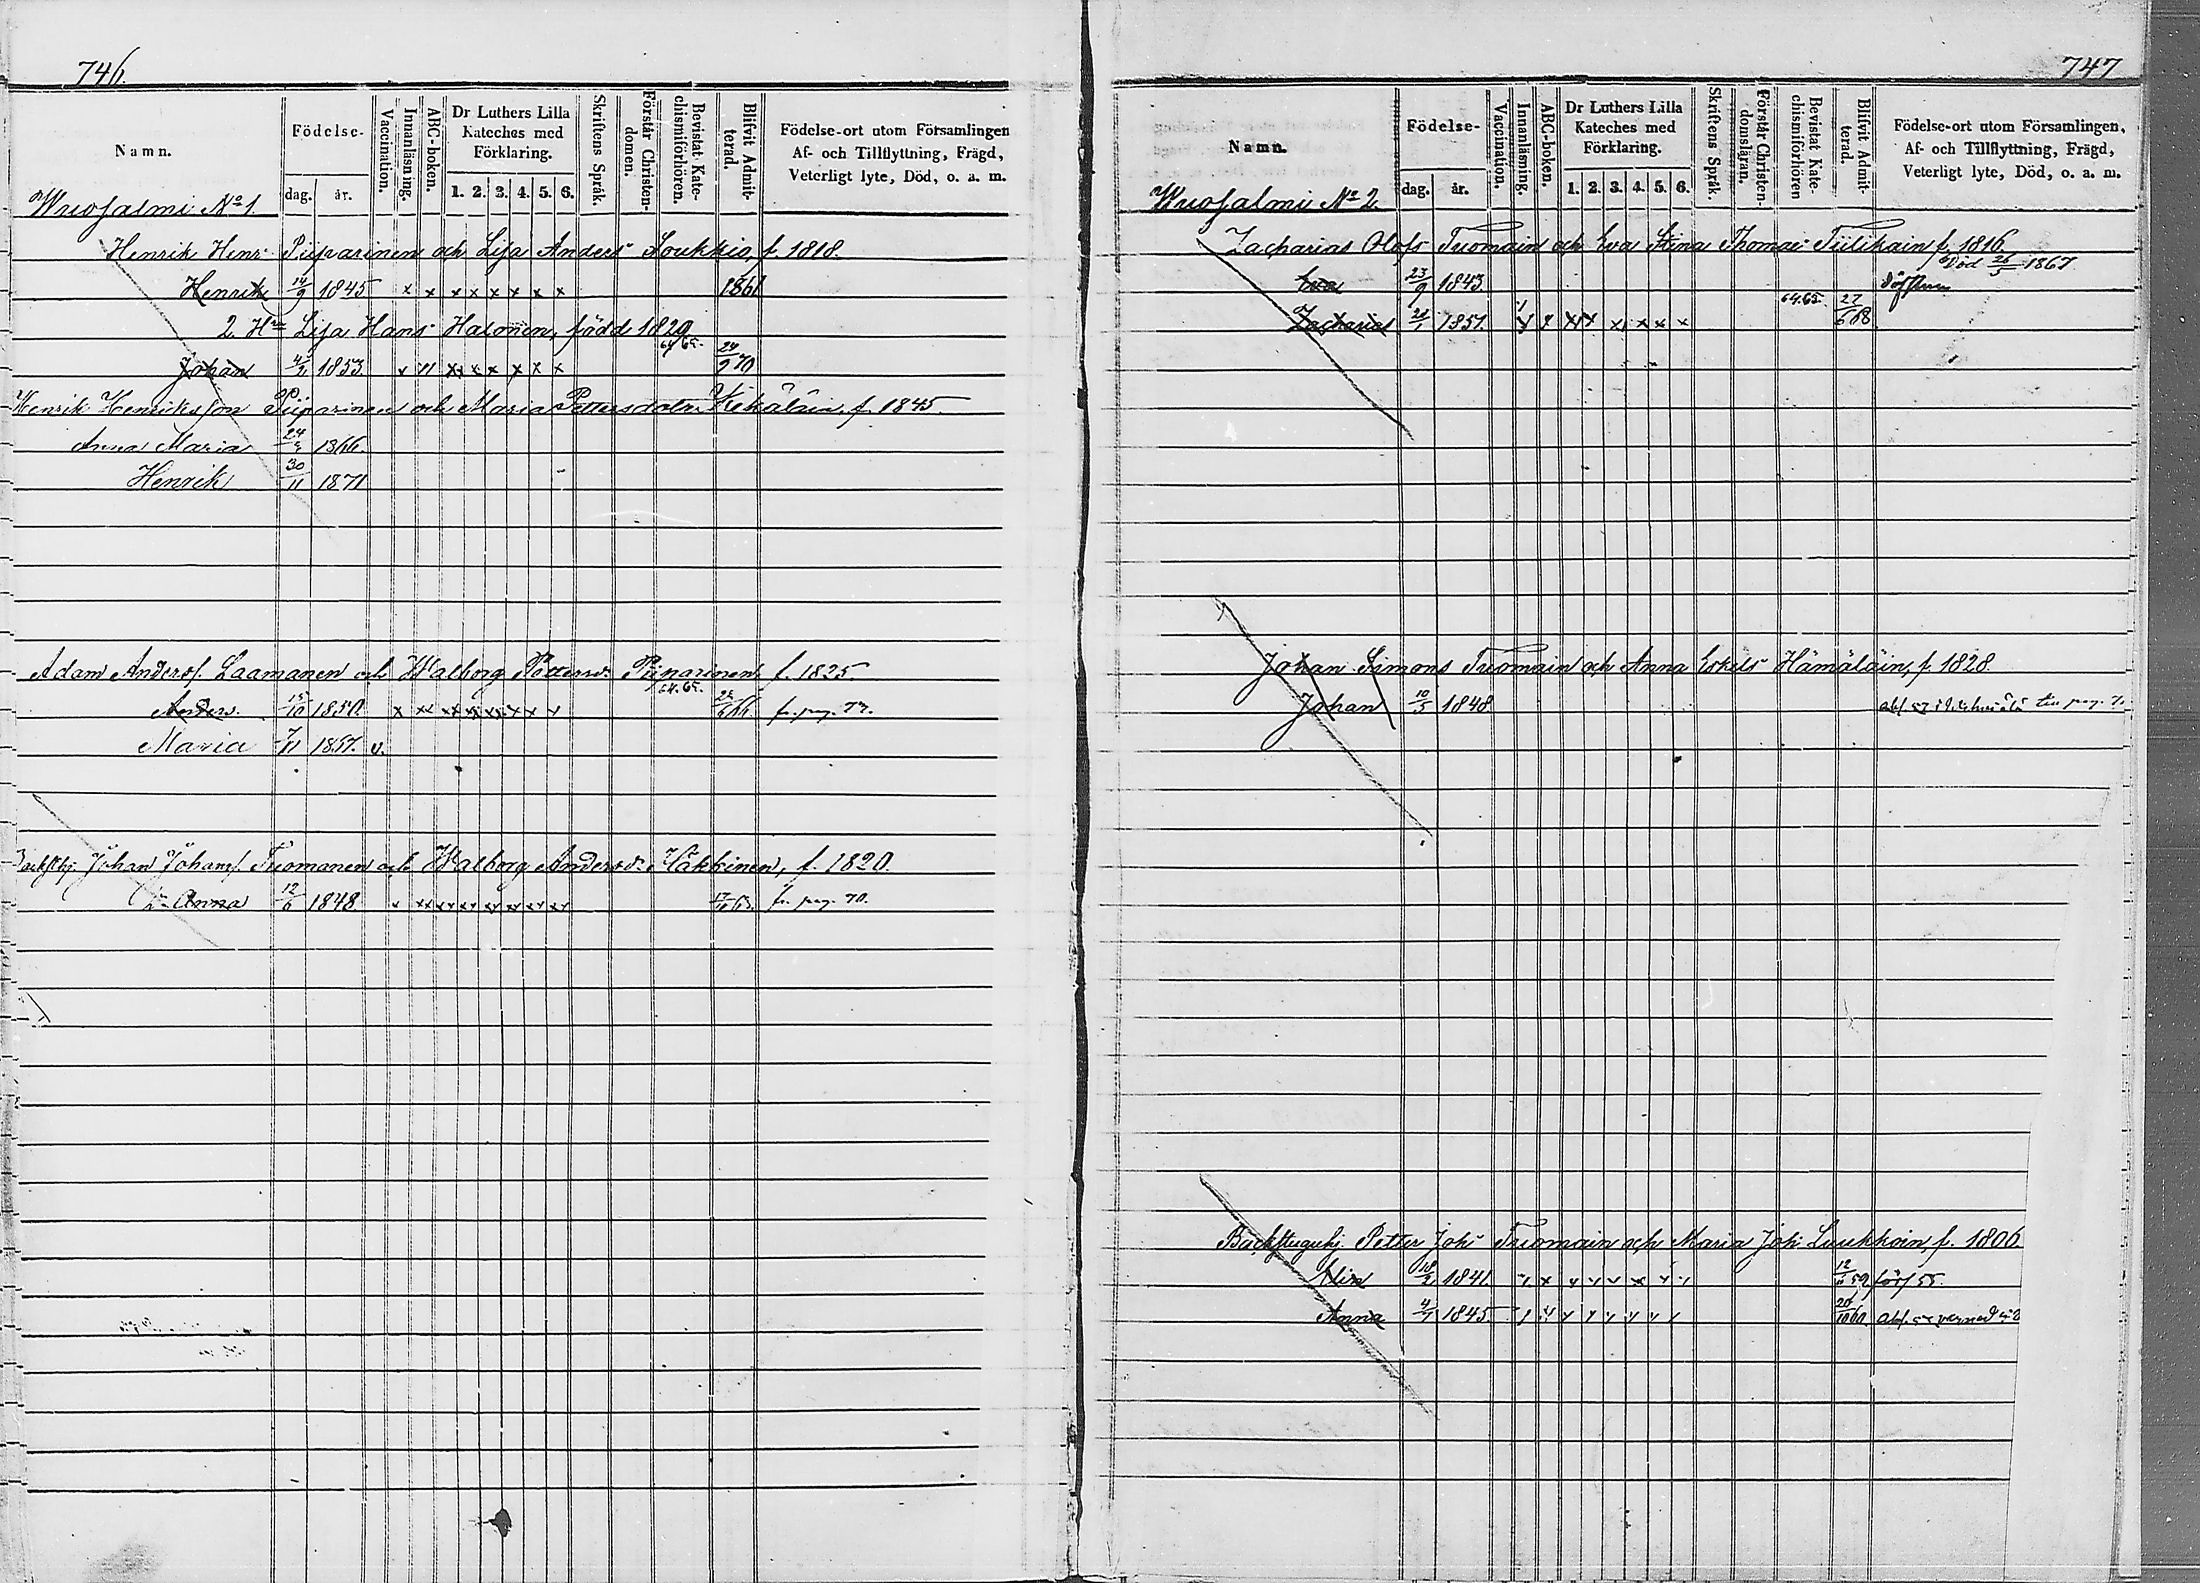 746.
Namn.
Födelse-
dag. år.
Vaccination.
Innanläsning.
ABC-boken.
Dr Luthers Lilla Kateches med Förklaring.
1. 2. 3. 4. 5. 6.
Skriftens Språk.
Förstår Christendomen.
Bevistat Katechismiförhören.
Blifvit Admitterad.
Födelse-ort utom Församlingen
Af- och Tillflyttning, Frägd,
Veterligt lyte, Död, o. a. m.
Wuosalmi No 1.
Henrik Henr: Piiparinen och Lisa Anders Loukkio, f. 1818.
Henrik 14/9 1845 x x x x x x x x 1861
2. Hn Lisa Hans Halonen, född 1820
64 65.
Johan 1853 24/9 70
Henrik Henriksson Piiparinen och Maria Pettersdotr Kekäläin, f. 1845
Anna Maria 1866.
Henrik 30/11 1871
Adam Anders. Laamanen och Walborg Petters: Piiparinen f. 1825.
64. 65.
Anders. 15/10 1850. fr. pag. 77.
Maria 7/11 1857. v.
Johan Johans. Tuomanen och Walborg Anders: Häkkinen, f. 1820.
Anna 12/6 1848 fr. pag. 70.
747
Namn.
Födelse-
dag. år.
Vaccination.
Innanläsning.
ABC-boken.
Dr Luthers Lilla Kateches med Förklaring.
1. 2. 3. 4. 5. 6.
Skriftens Språk.
Förstår Christendomsläran.
Bevistat Katechismiförhören
Blifvit Admitterad.
Födelse-ort utom Församlingen,
Af- och Tillflyttning, Frägd,
Veterligt lyte, Död, o. a. m.
Wuosalmi No 2.
Zacharias Olofs Tuomain och Eva Stina Thomas Tulikain f. 1816
Död 26/5 1867.
Eva 23/9 1843
64.65. 27/6 68
Zacharias 1851.
Johan Simons Tuomain och Anna Eskels Hämäläin, f. 1828.
Johan 10/5 1848
Backstuguhj. Petter Joh: Tuomain och Maria Joh: Luukkoin, f. 1806
Elin 18/2 1841. 12/11 59
Anna 4/7 1845 20/10 60